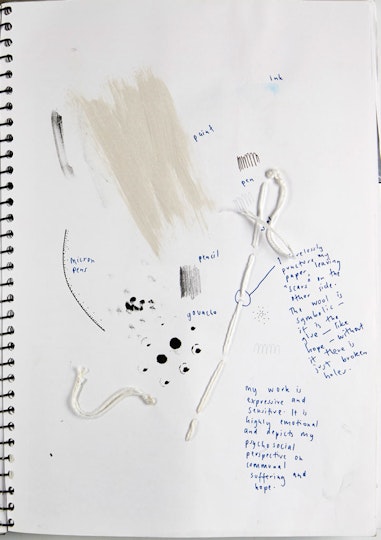 ink
paint
pen
pencil
micron
pens
gouache
I carelessly
puncture my
paper, leaving
"scars" on the
other side.
The wool is
symbolic –
it is the
glue – like
hope – without
it there is
just broken
holes.
my work is
expressive and
sensitive. It is
highly emotional
and depicts my
psychosocial
perspective on
communal
suffering and
hope.